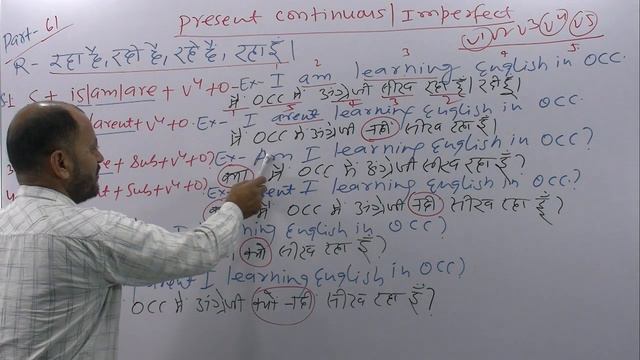 Part-61
Present continuous/Imperfect
V1 V2 V3 V4 V5
R- रहा है, रही है, रहे है, रहा हूँ।
S + is/am/are + V4 + O. Ex- I am learning English in OCC.
मैं OCC में अंग्रेजी सीख रहा हूँ। रही हूँ।
arent + V4 + O. Ex- I arent learning English in OCC.
मैं OCC में अंग्रेजी नही सीख रहा हूँ।
+ Sub + V4 + O? Ex- Am I learning English in OCC?
क्या मैं OCC में अंग्रेजी सीख रहा हूँ?
t + Sub + V4 + O? Ex- arent I learning English in OCC?
OCC में अंग्रेजी नही सीख रहा हूँ?
ning English in OCC?
क्यो सीख रहा हूँ?
arent I learning English in OCC?
OCC में अंग्रेजी क्यो नही सीख रहा हूँ?